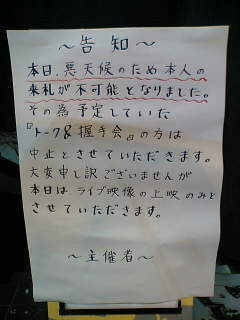 ～告知～
本日、悪天候のため本人の
来札が不可能となりました。
その為予定していた
『トーク&握手会』の方は
中止とさせていただきます。
大変申し訳ございませんが
本日はライブ映像の上映のみと
させていただきます。
～主催者～